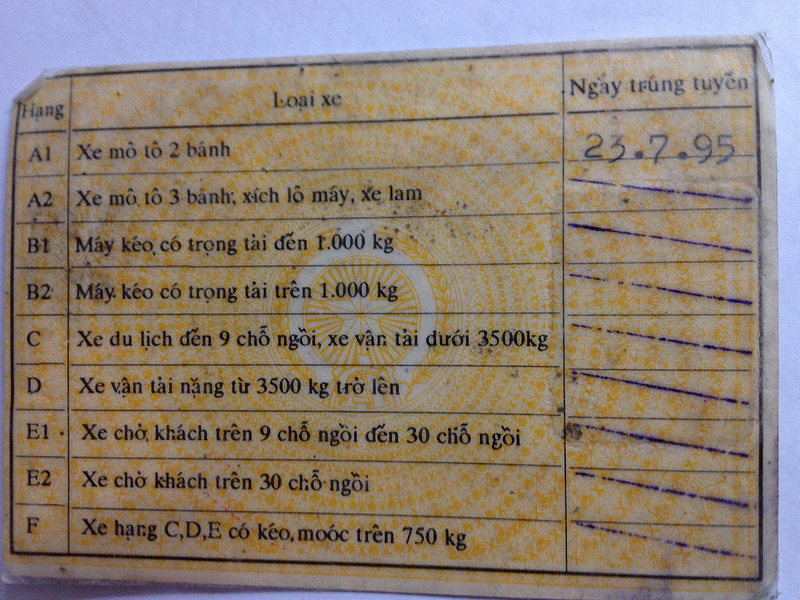 Hạng Loại xe Ngày trúng tuyển
A1 Xe mô tô 2 bánh 23.7.95
A2 Xe mô tô 3 bánh, xích lô máy, xe lam
B1 Máy kéo có trọng tải đến 1.000 kg
B2 Máy kéo có trọng tải trên 1.000 kg
C Xe du lịch đến 9 chỗ ngồi, xe vận tải dưới 3500kg
D Xe vận tải nặng từ 3500 kg trở lên
E1 Xe chở khách trên 9 chỗ ngồi đến 30 chỗ ngồi
E2 Xe chở khách trên 30 chỗ ngồi
F Xe hạng C,D,E có kéo moóc trên 750 kg